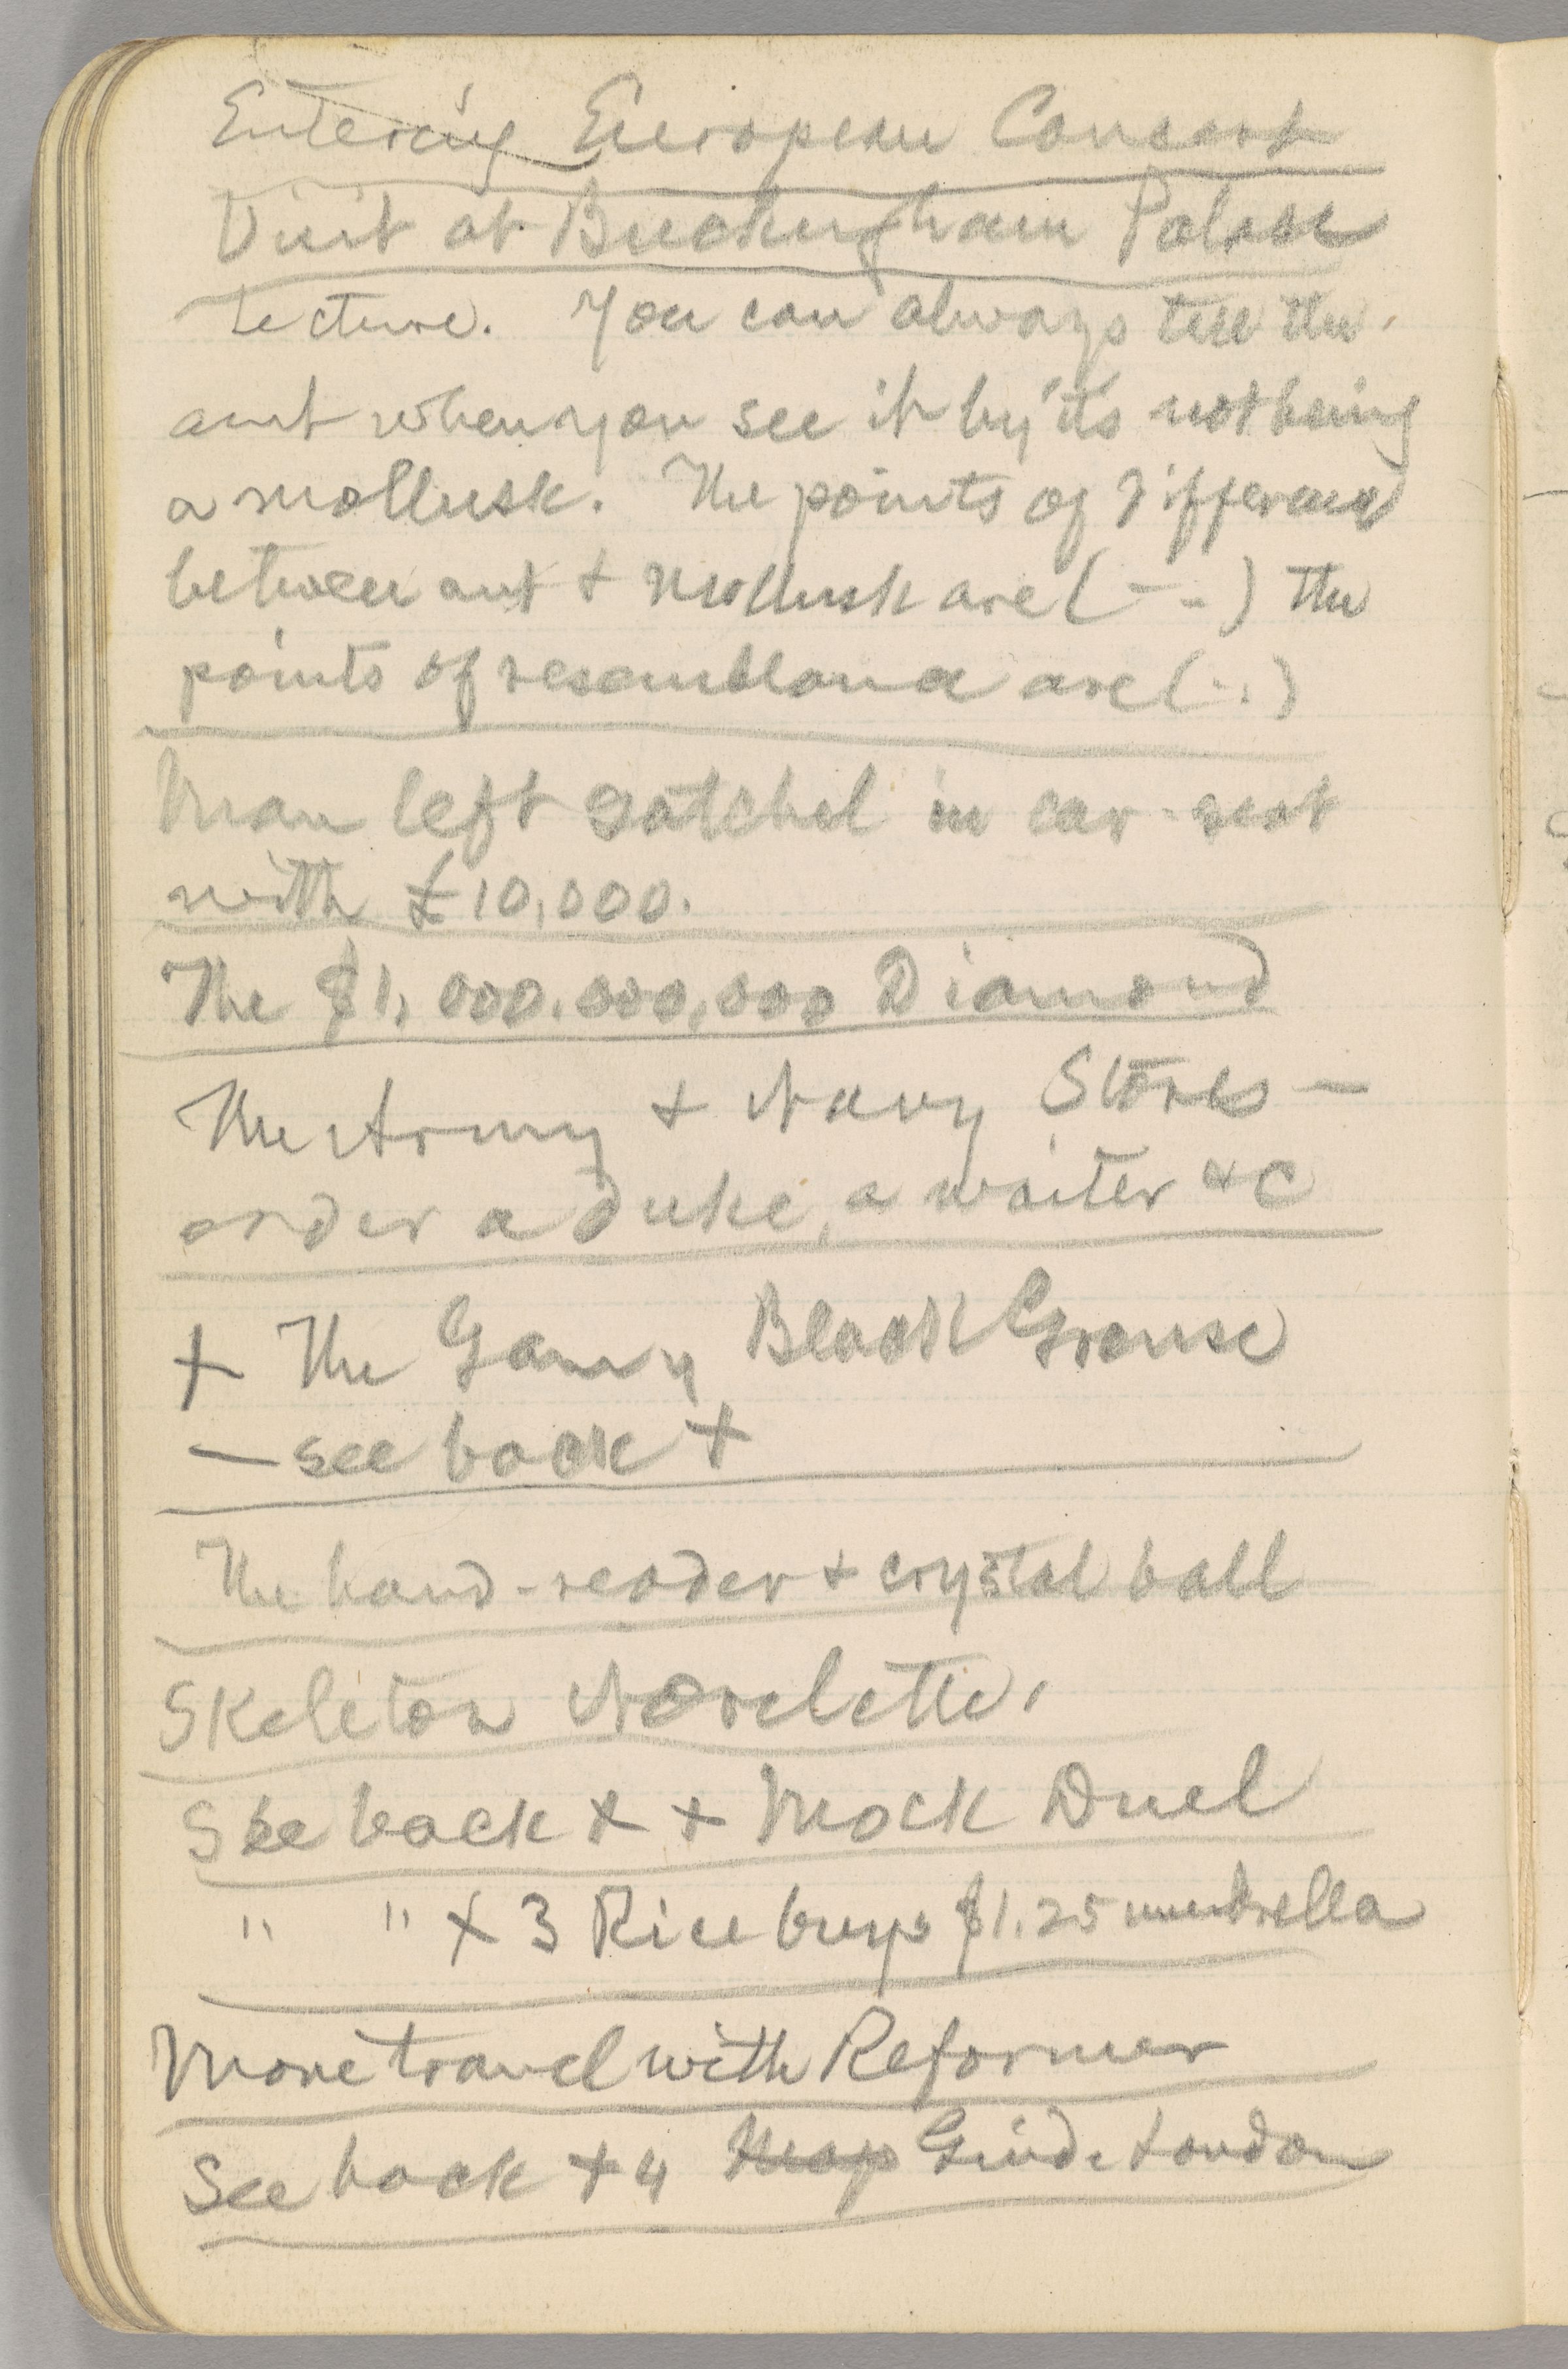 Entering European Concert
Visit at Buckingham Palace
Lecture. You can always tell the
ant when you see it by its not being
a mollusk. The points of difference
between ant + mollusk are (- -) the
points of resemblance are (- -)
Man left satchel in car-seat
with £10,000.
The $1,000,000,000 Diamond
The Army + Navy Stores —
order a duke, a waiter &c
+ The Gamy Black Grouse
— see back +
The hand-reader + crystal ball
Skeleton Novelette.
See back + + Mock Duel
" " + 3 Rice buys $1.25 umbrella
More travel with Reformer
See back + 4 Map Guide London